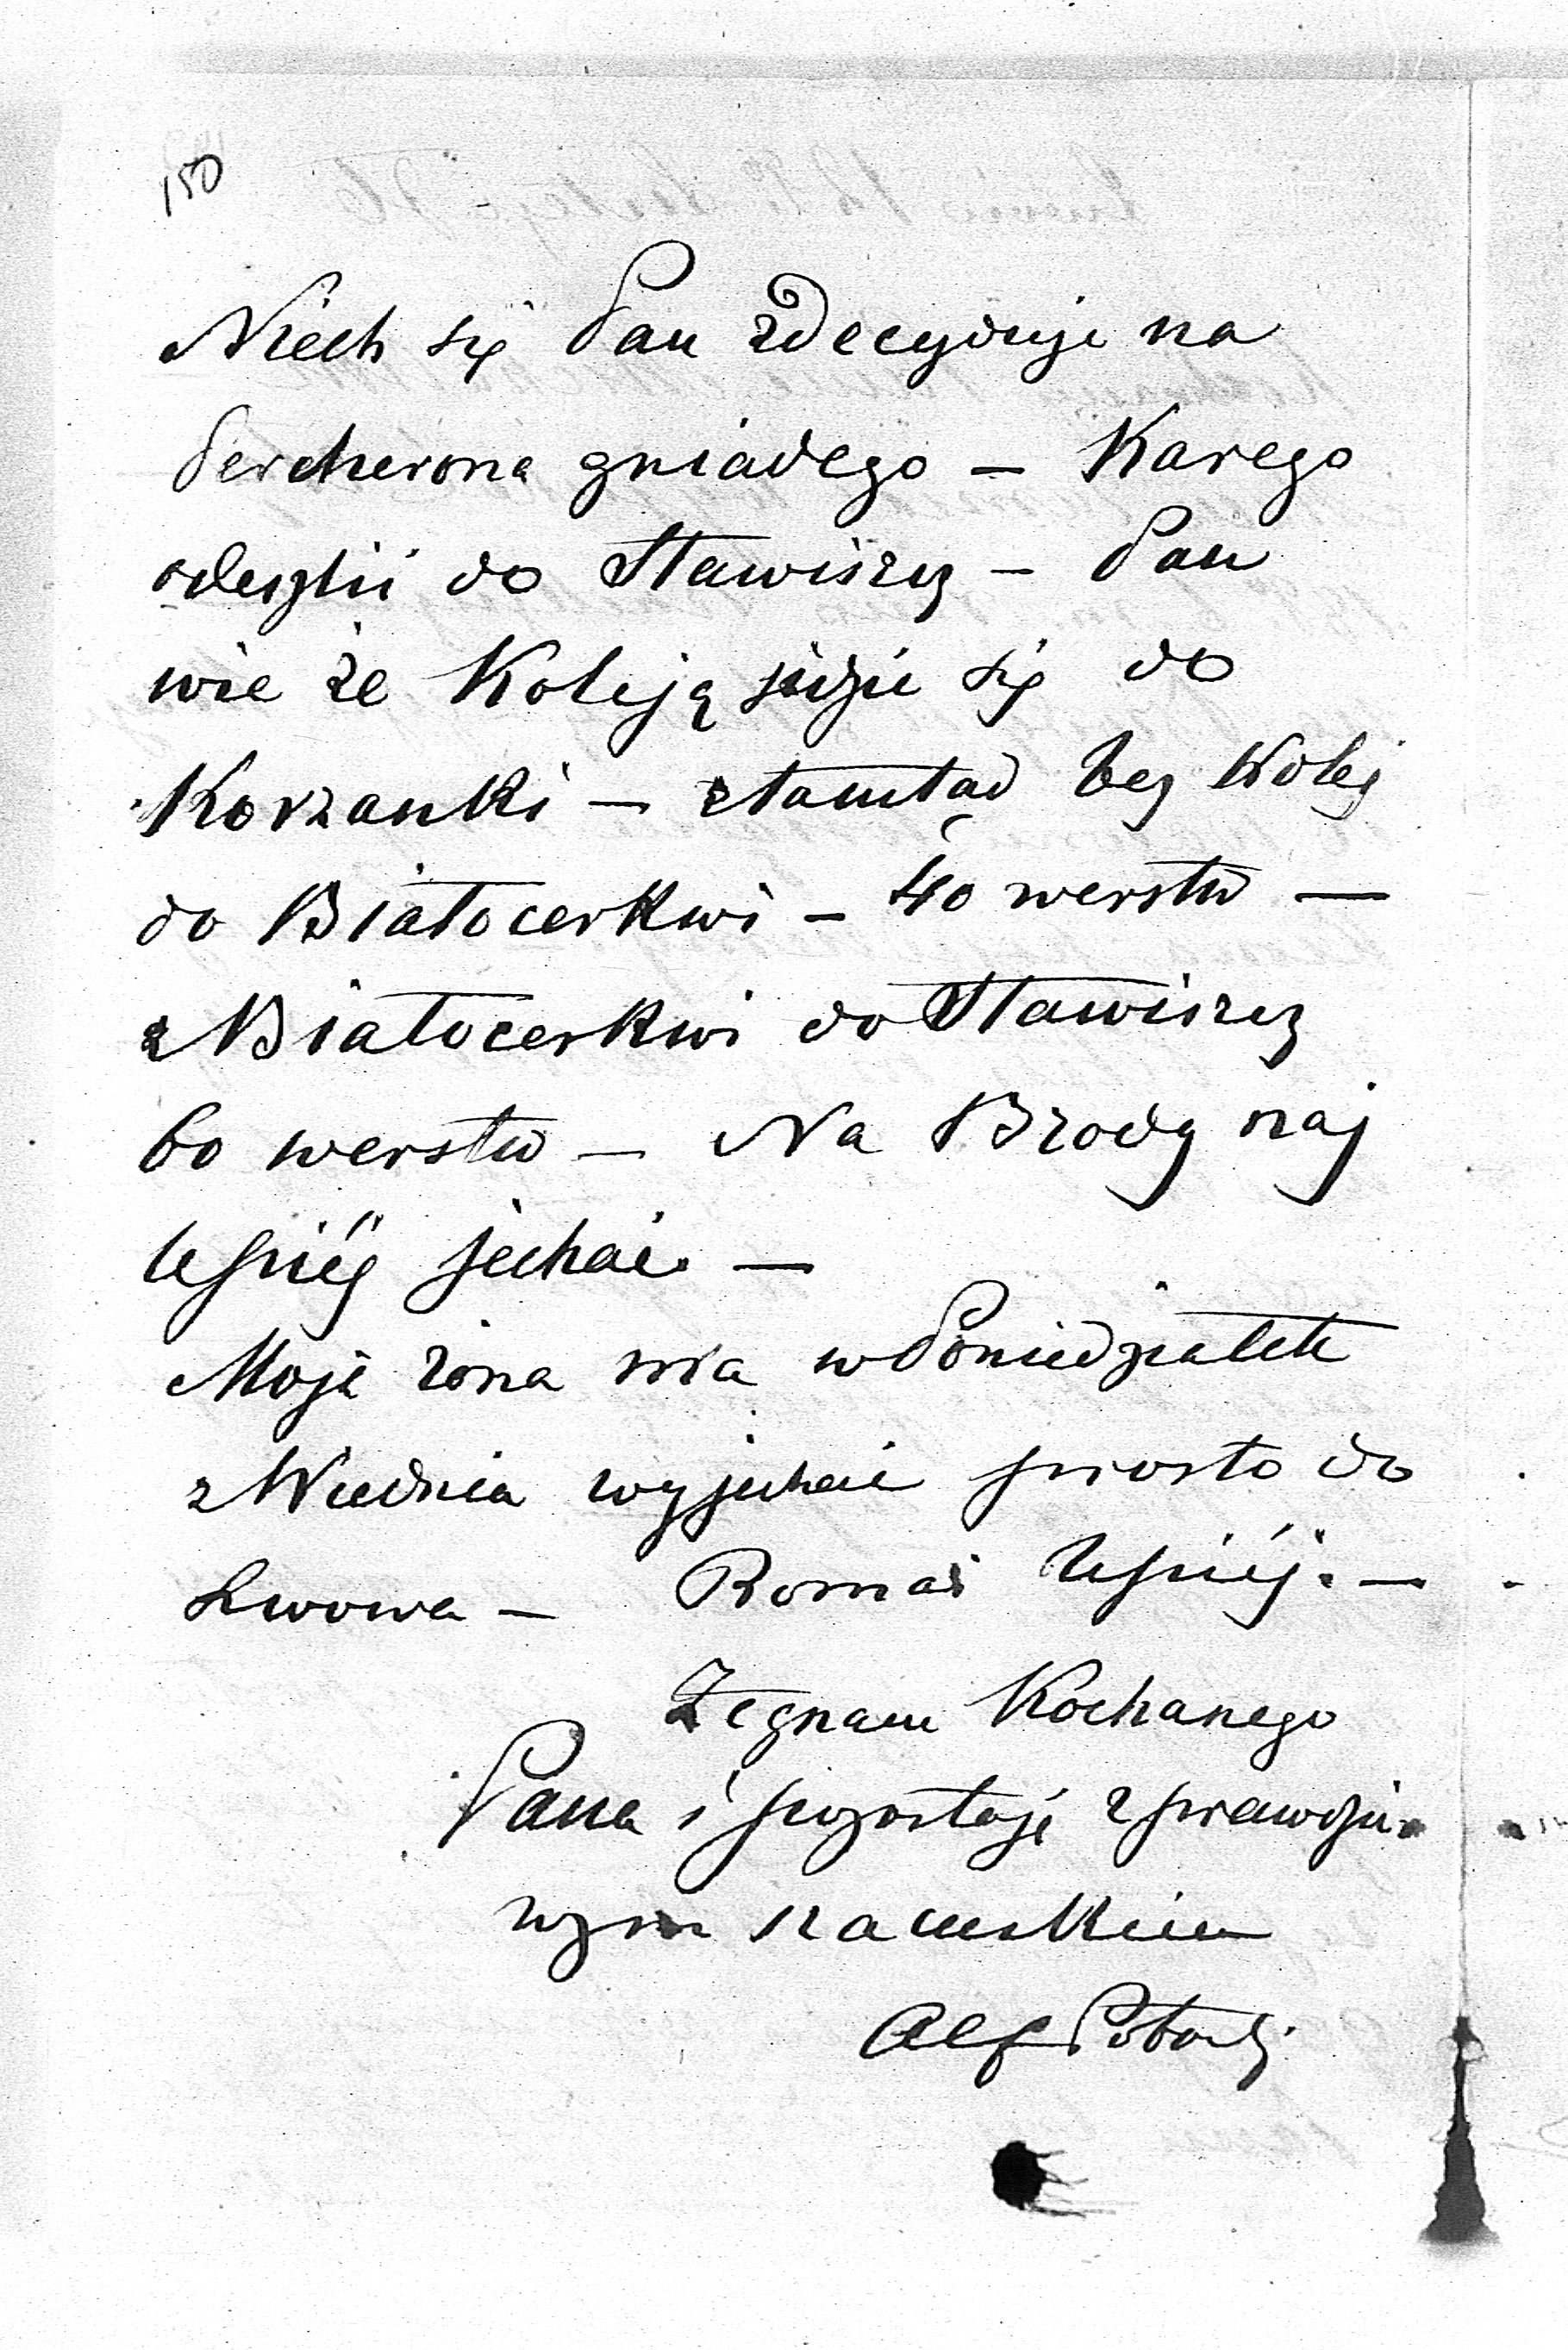 150
Niech się Pan zdecyduje na
Percherona gniadego – Karego
odeszlii do Stawiszcz – Pan
wie że Koleją jedzie się do
Korzanki – ztamtąd bez Kolej
do Białocerkwi – 40 werstw –
z Białocerkwi do Stawiszcz
60 werstw – Na Brody naj
lepiéj jechać –
Moja żona ma w Poniedziałek
z Wiednia wyjechać prosto do
Lwowa – Romai lepiéj. –
Żegnam Kochanego
Pana i pozostaję z prawdzi-
wym szacunkiem
Alf Potocki